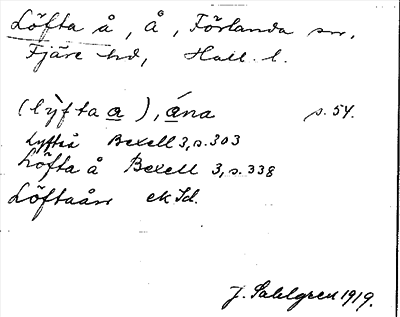 Löfta å, Å, Förlanda sn,
Fjäre hd, Hall. l.
(lỳfta a), ána s. 54.
Lyftiå Bexell 3, s. 303
Löfta å Bexell 3, s. 338
Löftaån ek Id.
J. Sahlgren 1919.